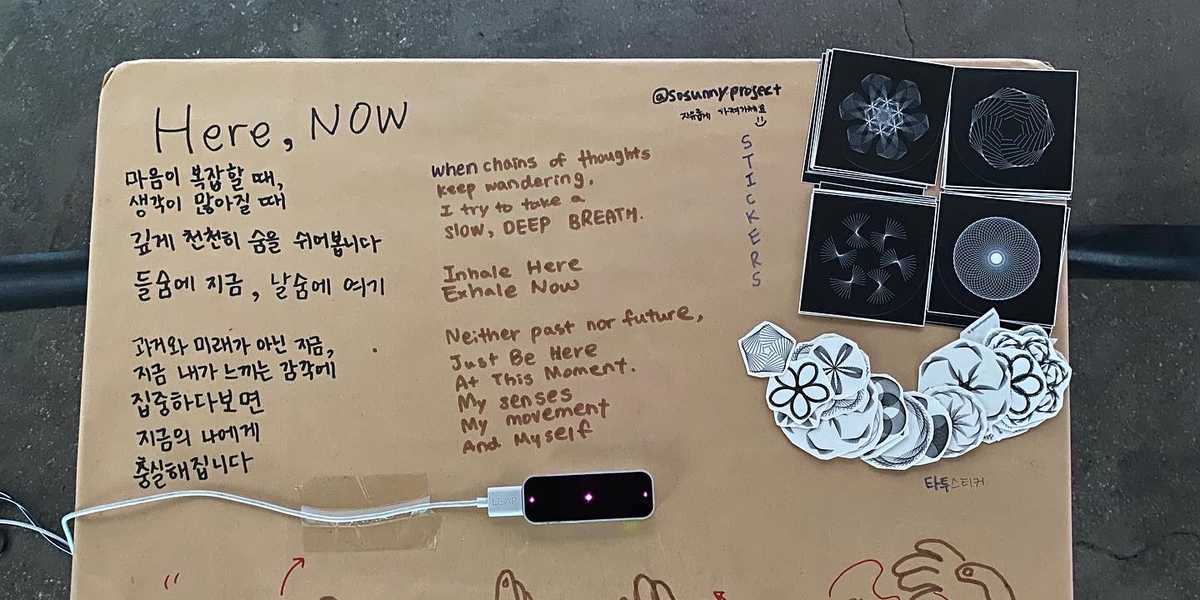 Here, NOW
마음이 복잡할 때,
생각이 많아질 때
깊게 천천히 숨을 쉬어봅니다
들숨에 지금, 날숨에 여기
과거와 미래가 아닌 지금,
지금 내가 느끼는 감각에
집중하다보면
지금의 나에게
충실해집니다
When chains of thoughts
keep wandering,
I try to take a
slow, DEEP BREATH.
Inhale Here
Exhale Now
Neither past nor future,
Just Be Here
At This Moment.
My senses
My movement
And Myself
@sosunny.project
자유롭게 가져가세요
STICKERS
타투스티커
LEAP